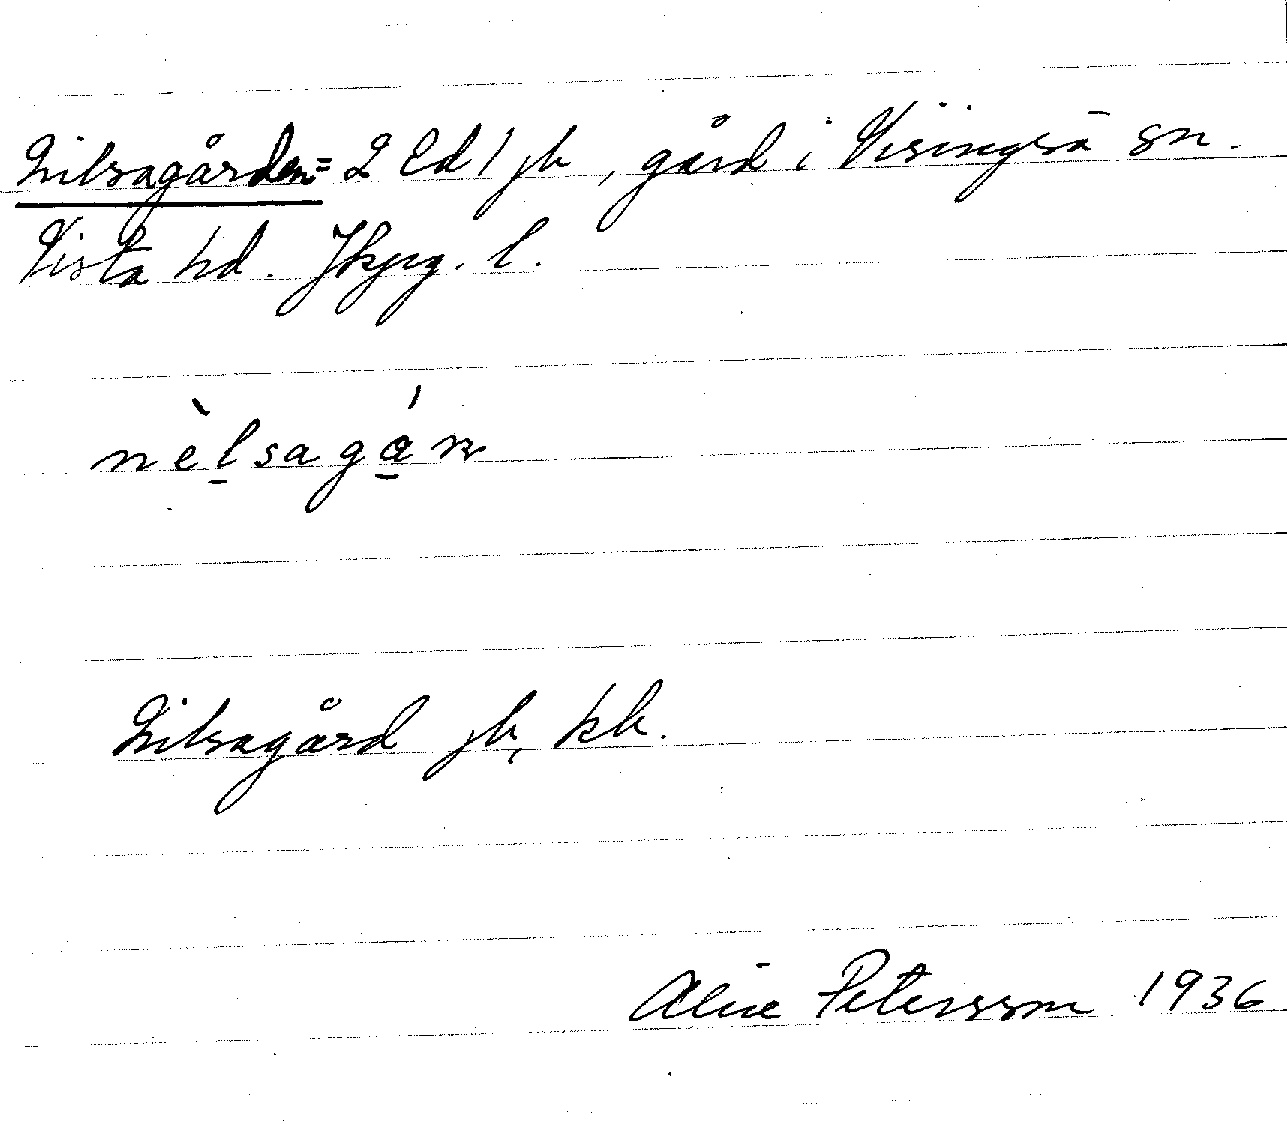 Nilsagården= 2 Ed 1 jb, gård i Visingsö sn.
Vista hd. Jkpg. l.
nèlsagán
Nilsagård jb, kb.
Alice Petersson 1936